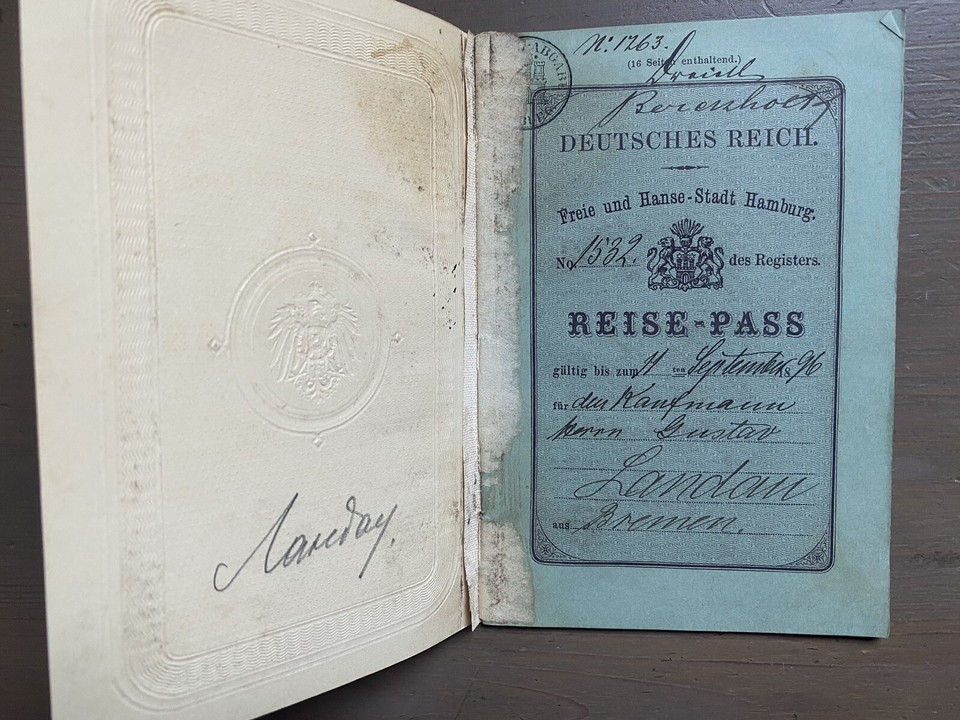 Ландау.
ABGABE
No: 1263.
(16 Seiten enthaltend.)
DEUTSCHES REICH.
Freie und Hanse-Stadt Hamburg.
No. 1532. des Registers.
REISE-PASS
gültig bis zum 11 ten September 1896
für den Kaufmann
Herrn Gustav
Landau
aus Bremen.